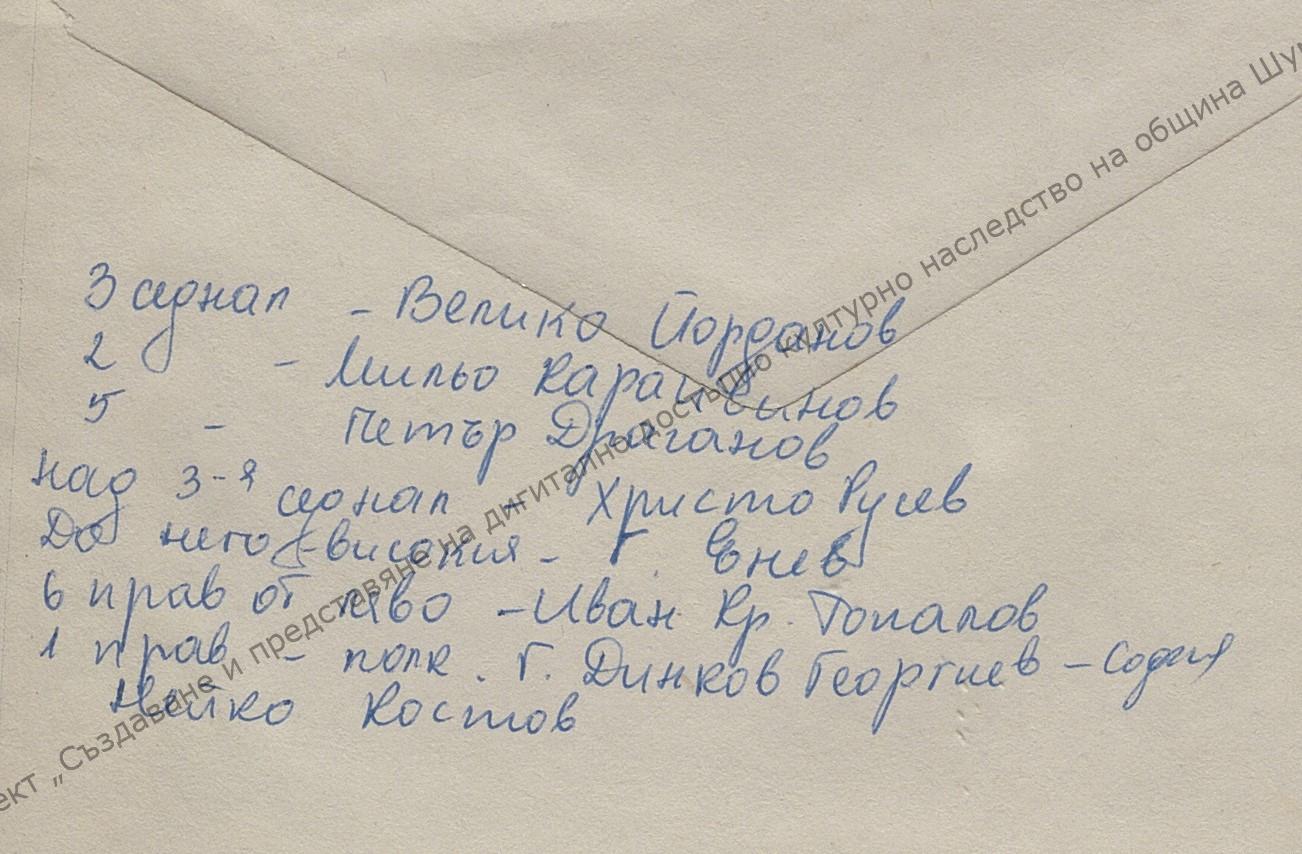 3 седнал - Велико Йорданов
2 - Мильо Караивынов
5 - Петър Драганов
над 3-я седнал - Христо Русев
До него - високия - Г. Енев
6 прав от ляво - Иван Кр. Топалов
1 прав - полк. Г. Динков Георгиев - София
Нейко Костов
ект „Създаване и представяне на дигитално достъпно културно наследство на община Шум